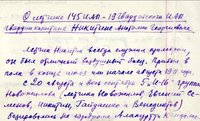 О летчике 145 ИАП - 19 Гвардейского ИАП
гвардии капитане Никитине Анатолии Георгиевиче
Летчик Никитин всегда служил примером,
он был отличный воздушный боец. Прибыл в
полк в конце июля или начале августа 1941 года.
с 20 августа весь октябрь 5 И-16 группы
Новожилова (летчики Новожилов, Евгений
Никитин, Гайдаенко и Венедиктов)
базировались на аэродроме Алакуртти